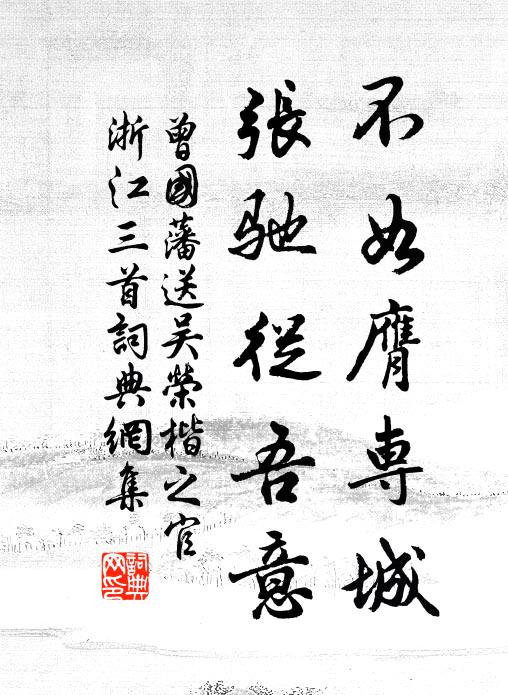 不如膺専城
張馳從吾意
曾國藩送吴榮楷之官
浙江三首詞典網集
詞典
网印